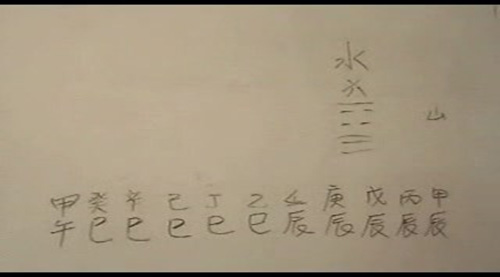 水
山
甲 癸 辛 己 丁 乙 庚 戊 丙 甲
午 巳 巳 巳 巳 巳 辰 辰 辰 辰 辰